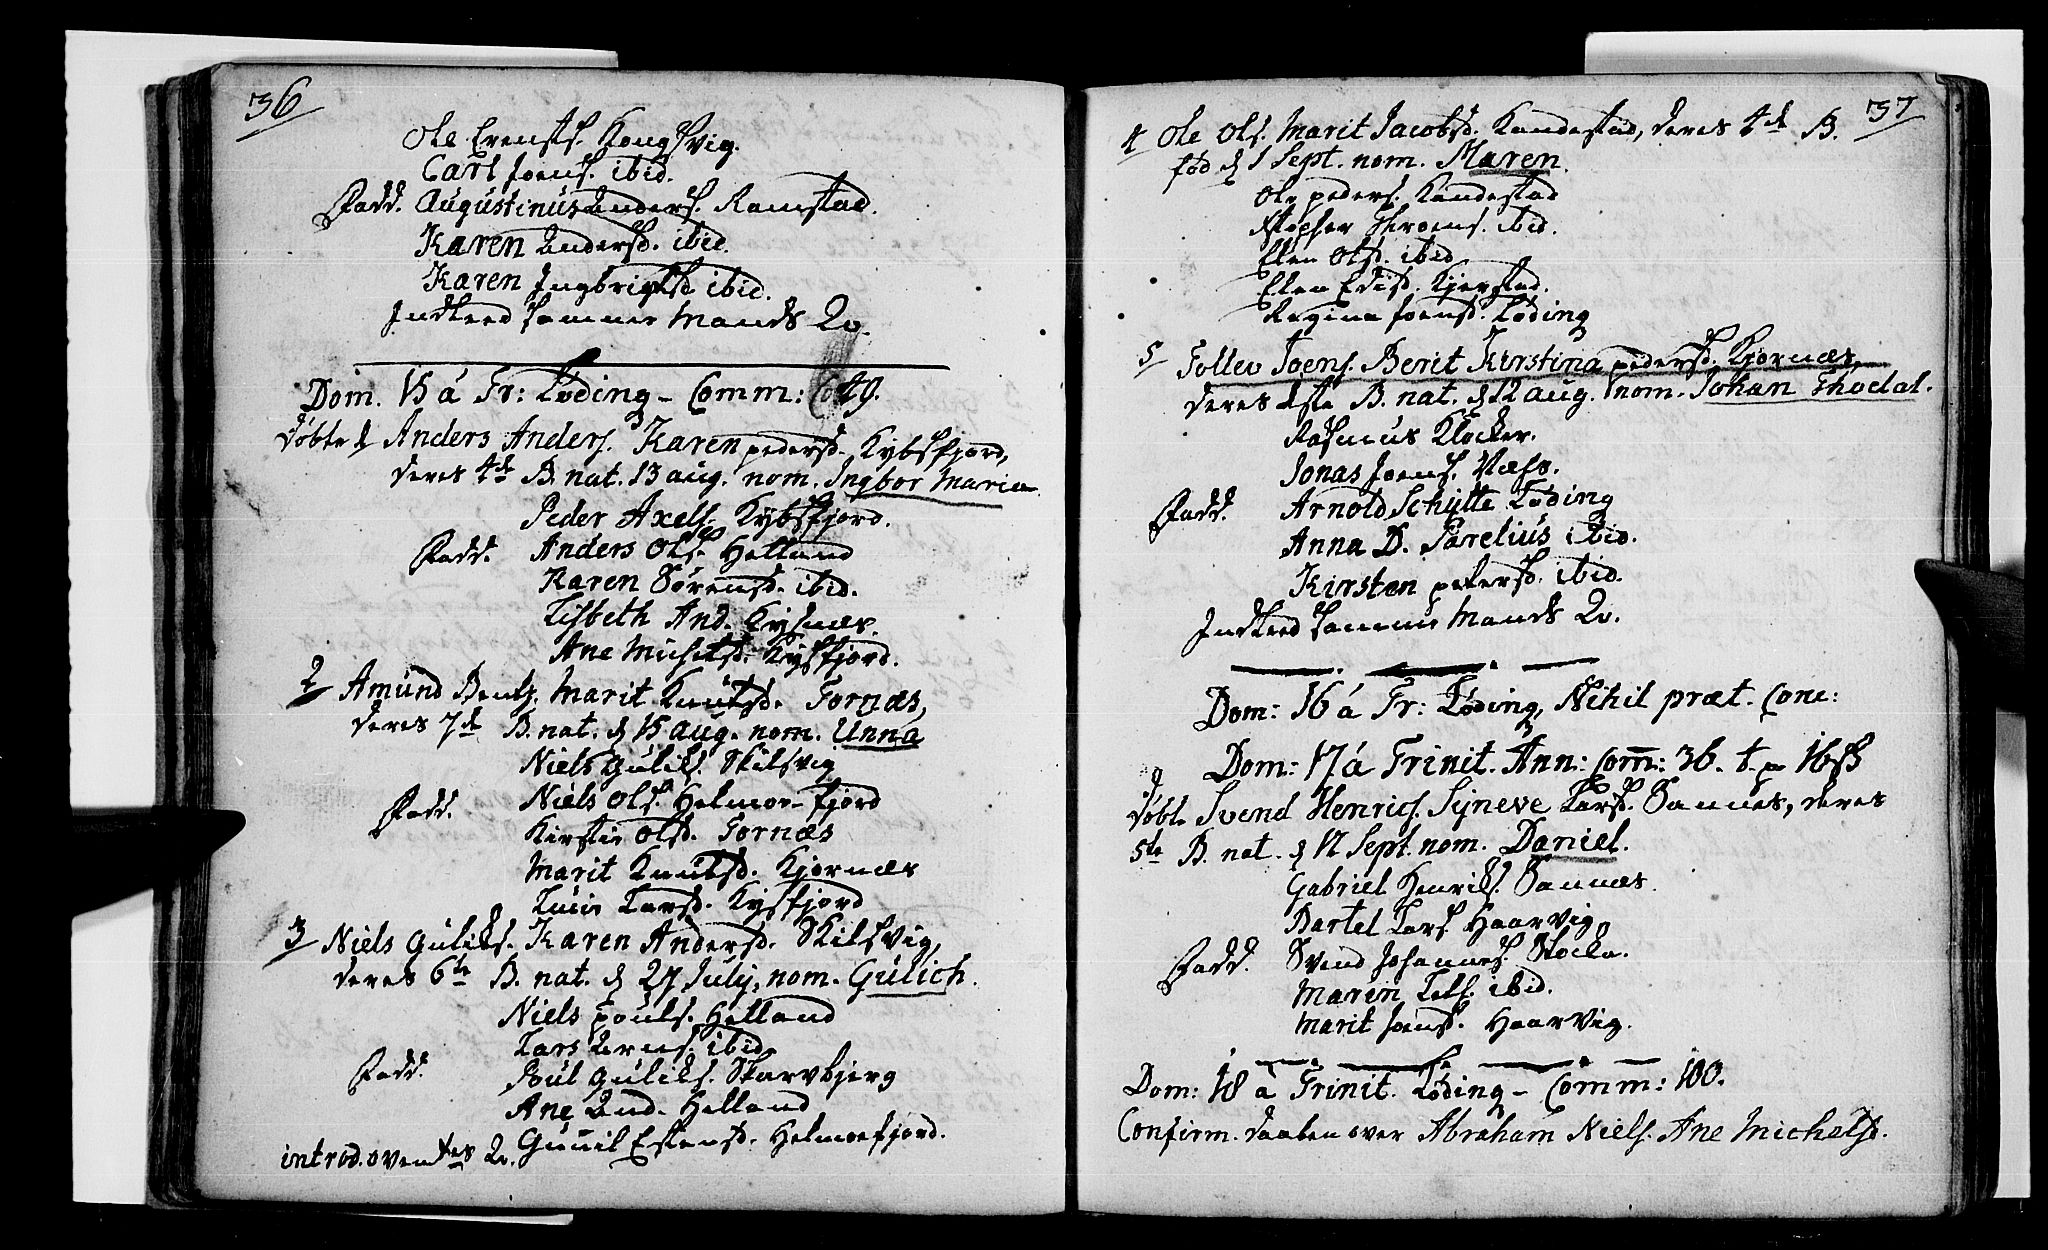 36
Ole Ernsts. Kongsvig.
Carl Joens. ibid.
Fadd. Augustinus Anders. Ramstad.
Karen Andersd. ibid.
Karen Ingbrigtsd. ibid.
Indleed samme Mands Qv.
Dom. 15 á Tr: Løding - Comm: 49.
Døbte d Anders Anders. Karen pedersd. Kybsfjord,
deres 4de B. nat. 13 aug. nom. Ingbor Maria
Peder Axels. Kybsfjord.
Fadd. Anders Ols. Helland
Karen Sørensd. ibid.
Lisbeth And. Kysnæs.
Ane Michelsd. Kysfjord.
2 Amund Bents. Marit Knutsd. Fornæs,
deres 7de B. nat. d 15 aug. nom. Unna
Niels Guliks. Skilsvig
Fadd. Niels Ols. Helmoe-fjord
Kirstie Olsd. Fornæs
Marit Knutsd. Kjørnæs
Larsd. Kysfjord
3 Niels Guliks. Karen Andersd. Skilsvig,
deres 6te B. nat. d 27 July, nom. Gulich.
Niels pouls. Helland
Lars Arns. ibid.
Fadd. Poul Guliks. Skarvbjerg
Ane And. Helland
Gunil Estensd. Helmoefjord.
introd. ovennes Qv.
37
4 Ole Ols. Marit Jacobsd. Kandestad, deres 4de B.
fød d 1 Sept. nom. Maren.
Ole peders. Kandestad
ibid.
Elen Olsd. ibid
Elen Kjerstad.
Regina Joensd. Løding
5 Tollev Joens. Berit Kirstina pedersd. Kjørnæs,
deres 1ste B. nat. d 12 aug. nom. Johan Thodal.
Rasmus Klocker.
Jonas Joens. Næss.
Fadd. Arnold Schytte Løding
Anna D. Parelius ibid.
Kirsten petersd. ibid.
Indleed samme Mands Qv.
Dom: 16 á Tr: Løding, Nihil præt. Conc:
Dom: 17 á Trinit. Ann: Com: 36.
Døbt d Svend Henrics. Syneve Larsd. Sannæs, deres
5te B. nat. d 12 Sept. nom. Daniel.
Gabriel Henriks. Sannæs.
Bartel Lars Haarvig
Fadd. Svend Johannes. Stocke.
Maren ibid.
Marit Joensd. Haarvig.
Dom: 18 á Trinit. Løding - Comm: 100.
Confirm. daaben over Abraham Niels. Ane Michelsd.